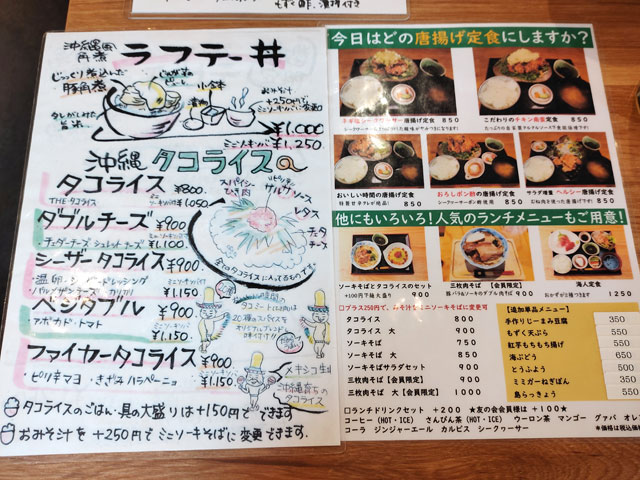 もずく酢、漬物付き
沖縄風
角煮
ラフテー丼
じっくり煮込んだ
豚角煮
小鉢
漬物
おみそ汁
+250円で
ミニソーキそばに変更可
¥1,000
ミニソーキソバ ¥1,250
沖縄 タコライス
タコライス ¥800
THE タコライス
ミニソーキソバ ¥1,050
スパイシー
ひき肉
サルサソース
レタス
チェダ
チーズ
ダブルチーズ ¥900
・チェダーチーズ シュレットチーズ
¥1,150
シーザータコライス ¥900
・温卵・シーザードレッシング
・パルメザンチーズ・カリカリ
ミニソーキソバ
¥1,150
ベジタブル ¥900
アボカド・トマト
ミニソーキソバ
¥1,150
ファイヤータコライス ¥900
・ピリ辛マヨ ・きざみハラペーニョ
¥1,150
メキシコ生まれ
沖縄育ちの
タコライス
タコライスのごはん・具の大盛りは+150円でできます
おみそ汁を+250円でミニソーキそばに変更できます.
今日はどの唐揚げ定食にしますか?
ネギ塩シークワーサー唐揚げ定食 850
こだわりのチキン南蛮定食 850
おいしい時間の唐揚げ定食 850
おろしポン酢の唐揚げ定食 850
サラダ増量 ヘルシー唐揚げ定食 850
他にもいろいろ!人気のランチメニューもご用意!
ソーキそばとタコライスのセット
+100円で麺大盛り 950
三枚肉そば 【会員限定】
900
海人定食
おかずが2種つきます 1250
□プラス250円で、みそ汁をミニソーキそばに変更可
タコライス 800
タコライス 大 900
ソーキそば 750
ソーキそば 大 850
ソーキそばサラダセット 900
三枚肉そば【会員限定】 900
三枚肉そば 大【会員限定】 1000
【追加単品メニュー】
手作りじーまみ豆腐 350
もずく天ぷら 550
紅芋もちもち揚げ 550
海ぶどう 650
とうふよう 500
ミミガーねぎぽん 350
島らっきょう 550
□ランチドリンクセット +200 ★友の会会員様は +100★
コーヒー(HOT・ICE) さんぴん茶(HOT・ICE) ウーロン茶 マンゴー グァバ オレ
コーラ ジンジャーエール カルピス シークヮーサー
*価格は税込価格